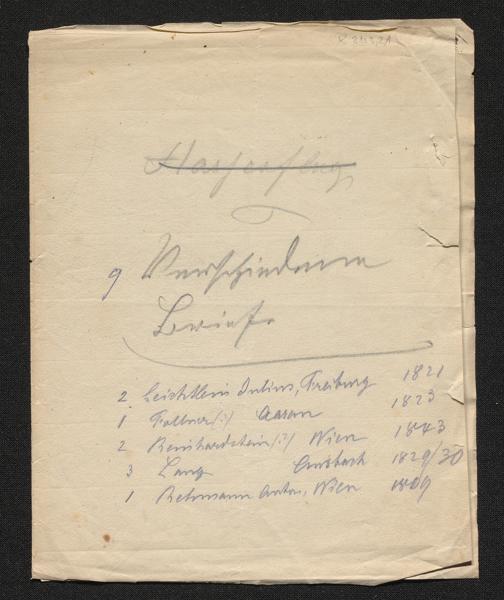 9 Verschiedene
Briefe
2 Leichtlein Julius, Freiburg 1821
1 Follner (?) Aarau 1823
2 Reinhardstein (?) Wien 1843
3 Lang Ansbach 1829/30
1 Rehmann Anton, Wien 1809